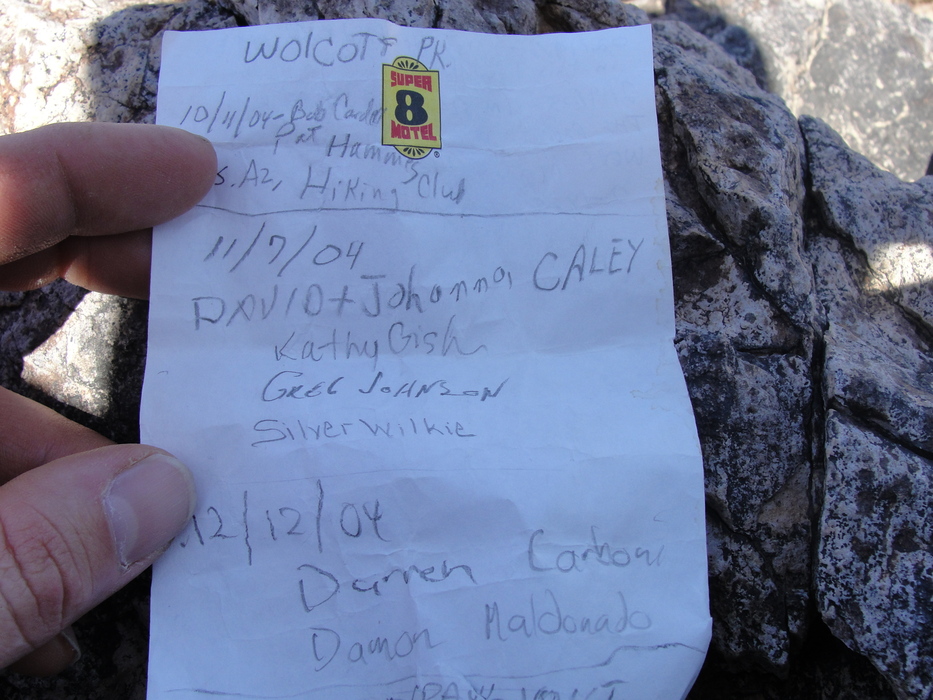 WOLCOTT PK.
SUPER
8
MOTEL
10/11/04-Bob
Pat Hammes
S. AZ, Hiking Club
11/7/04
DAVID + Johanna CALEY
Kathy Gish
GREG JOHNSON
Silver Wilkie
12/12/04
Darren Carboni
Damon Maldonado